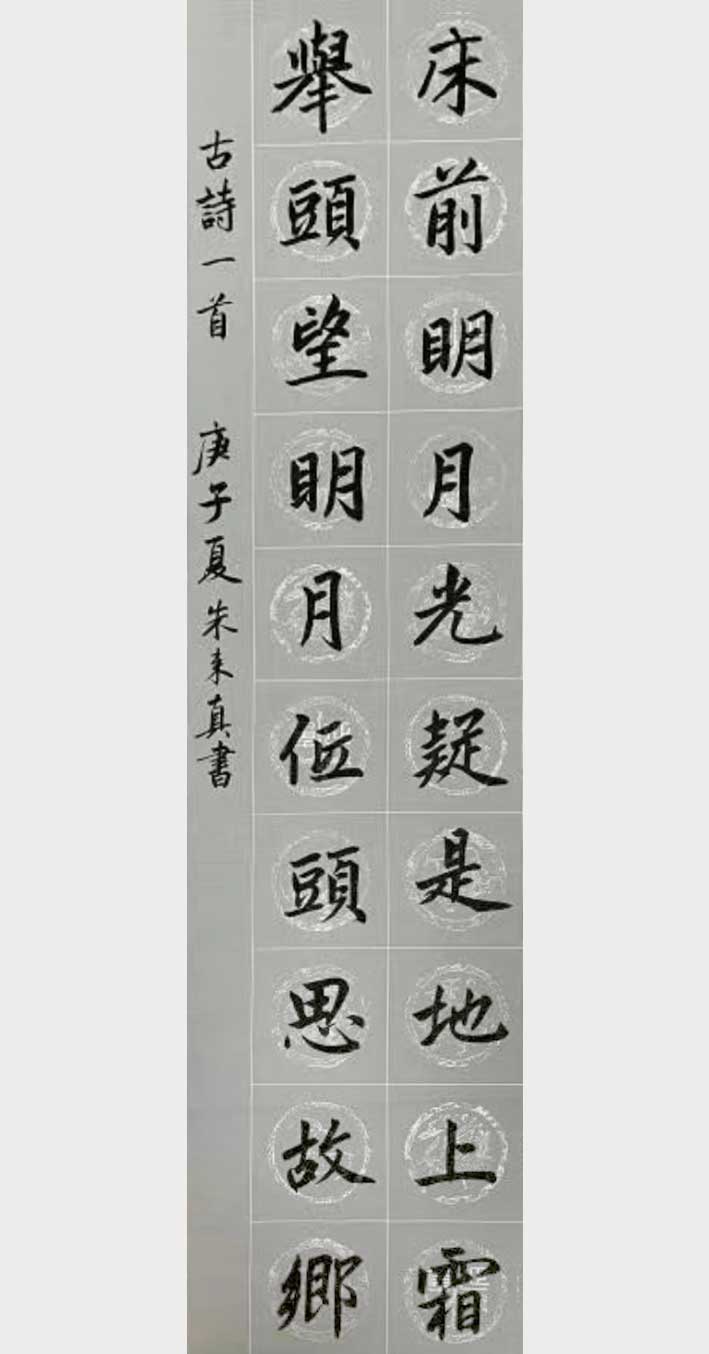 床前明月光疑是地上霜
舉頭望明月低頭思故鄉
古詩一首 庚子夏朱来真書